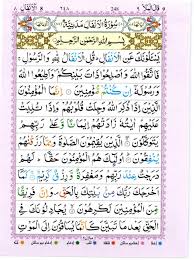 سُوْرَةُ الْاَنْفَالِ مَدَنِيَّةٌ
بِسْمِ اللّٰهِ الرَّحْمٰنِ الرَّحِيْمِ
يَسْـَٔلُوْنَكَ عَنِ الْاَنْفَالِ قُلِ الْاَنْفَالُ لِلّٰهِ وَالرَّسُوْلِ
فَاتَّقُوا اللّٰهَ وَاَصْلِحُوْا ذَاتَ بَيْنِكُمْ وَاَطِيْعُوا اللّٰهَ
وَرَسُوْلَهٗۤ اِنْ كُنْتُمْ مُّؤْمِنِيْنَ اِنَّمَا الْمُؤْمِنُوْنَ الَّذِيْنَ
اِذَا ذُكِرَ اللّٰهُ وَجِلَتْ قُلُوْبُهُمْ وَاِذَا تُلِيَتْ عَلَيْهِمْ
اٰيٰتُهٗ زَادَتْهُمْ اِيْمَانًا وَّعَلٰى رَبِّهِمْ يَتَوَكَّلُوْنَ الَّذِيْنَ
يُقِيْمُوْنَ الصَّلٰوةَ وَمِمَّا رَزَقْنٰهُمْ يُنْفِقُوْنَ اُولٰٓئِكَ
هُمُ الْمُؤْمِنُوْنَ حَقًّا لَهُمْ دَرَجٰتٌ عِنْدَ رَبِّهِمْ وَمَغْفِرَةٌ
وَّرِزْقٌ كَرِيْمٌ كَمَاۤ اَخْرَجَكَ رَبُّكَ مِنْۢ بَيْتِكَ بِالْحَقِّ وَاِنَّ فَرِيْقًا
مِّنَ الْمُؤْمِنِيْنَ لَكٰرِهُوْنَ يُجَادِلُوْنَكَ فِى
الْحَقِّ بَعْدَ مَا تَبَيَّنَ كَاَنَّمَا يُسَاقُوْنَ اِلَى الْمَوْتِ